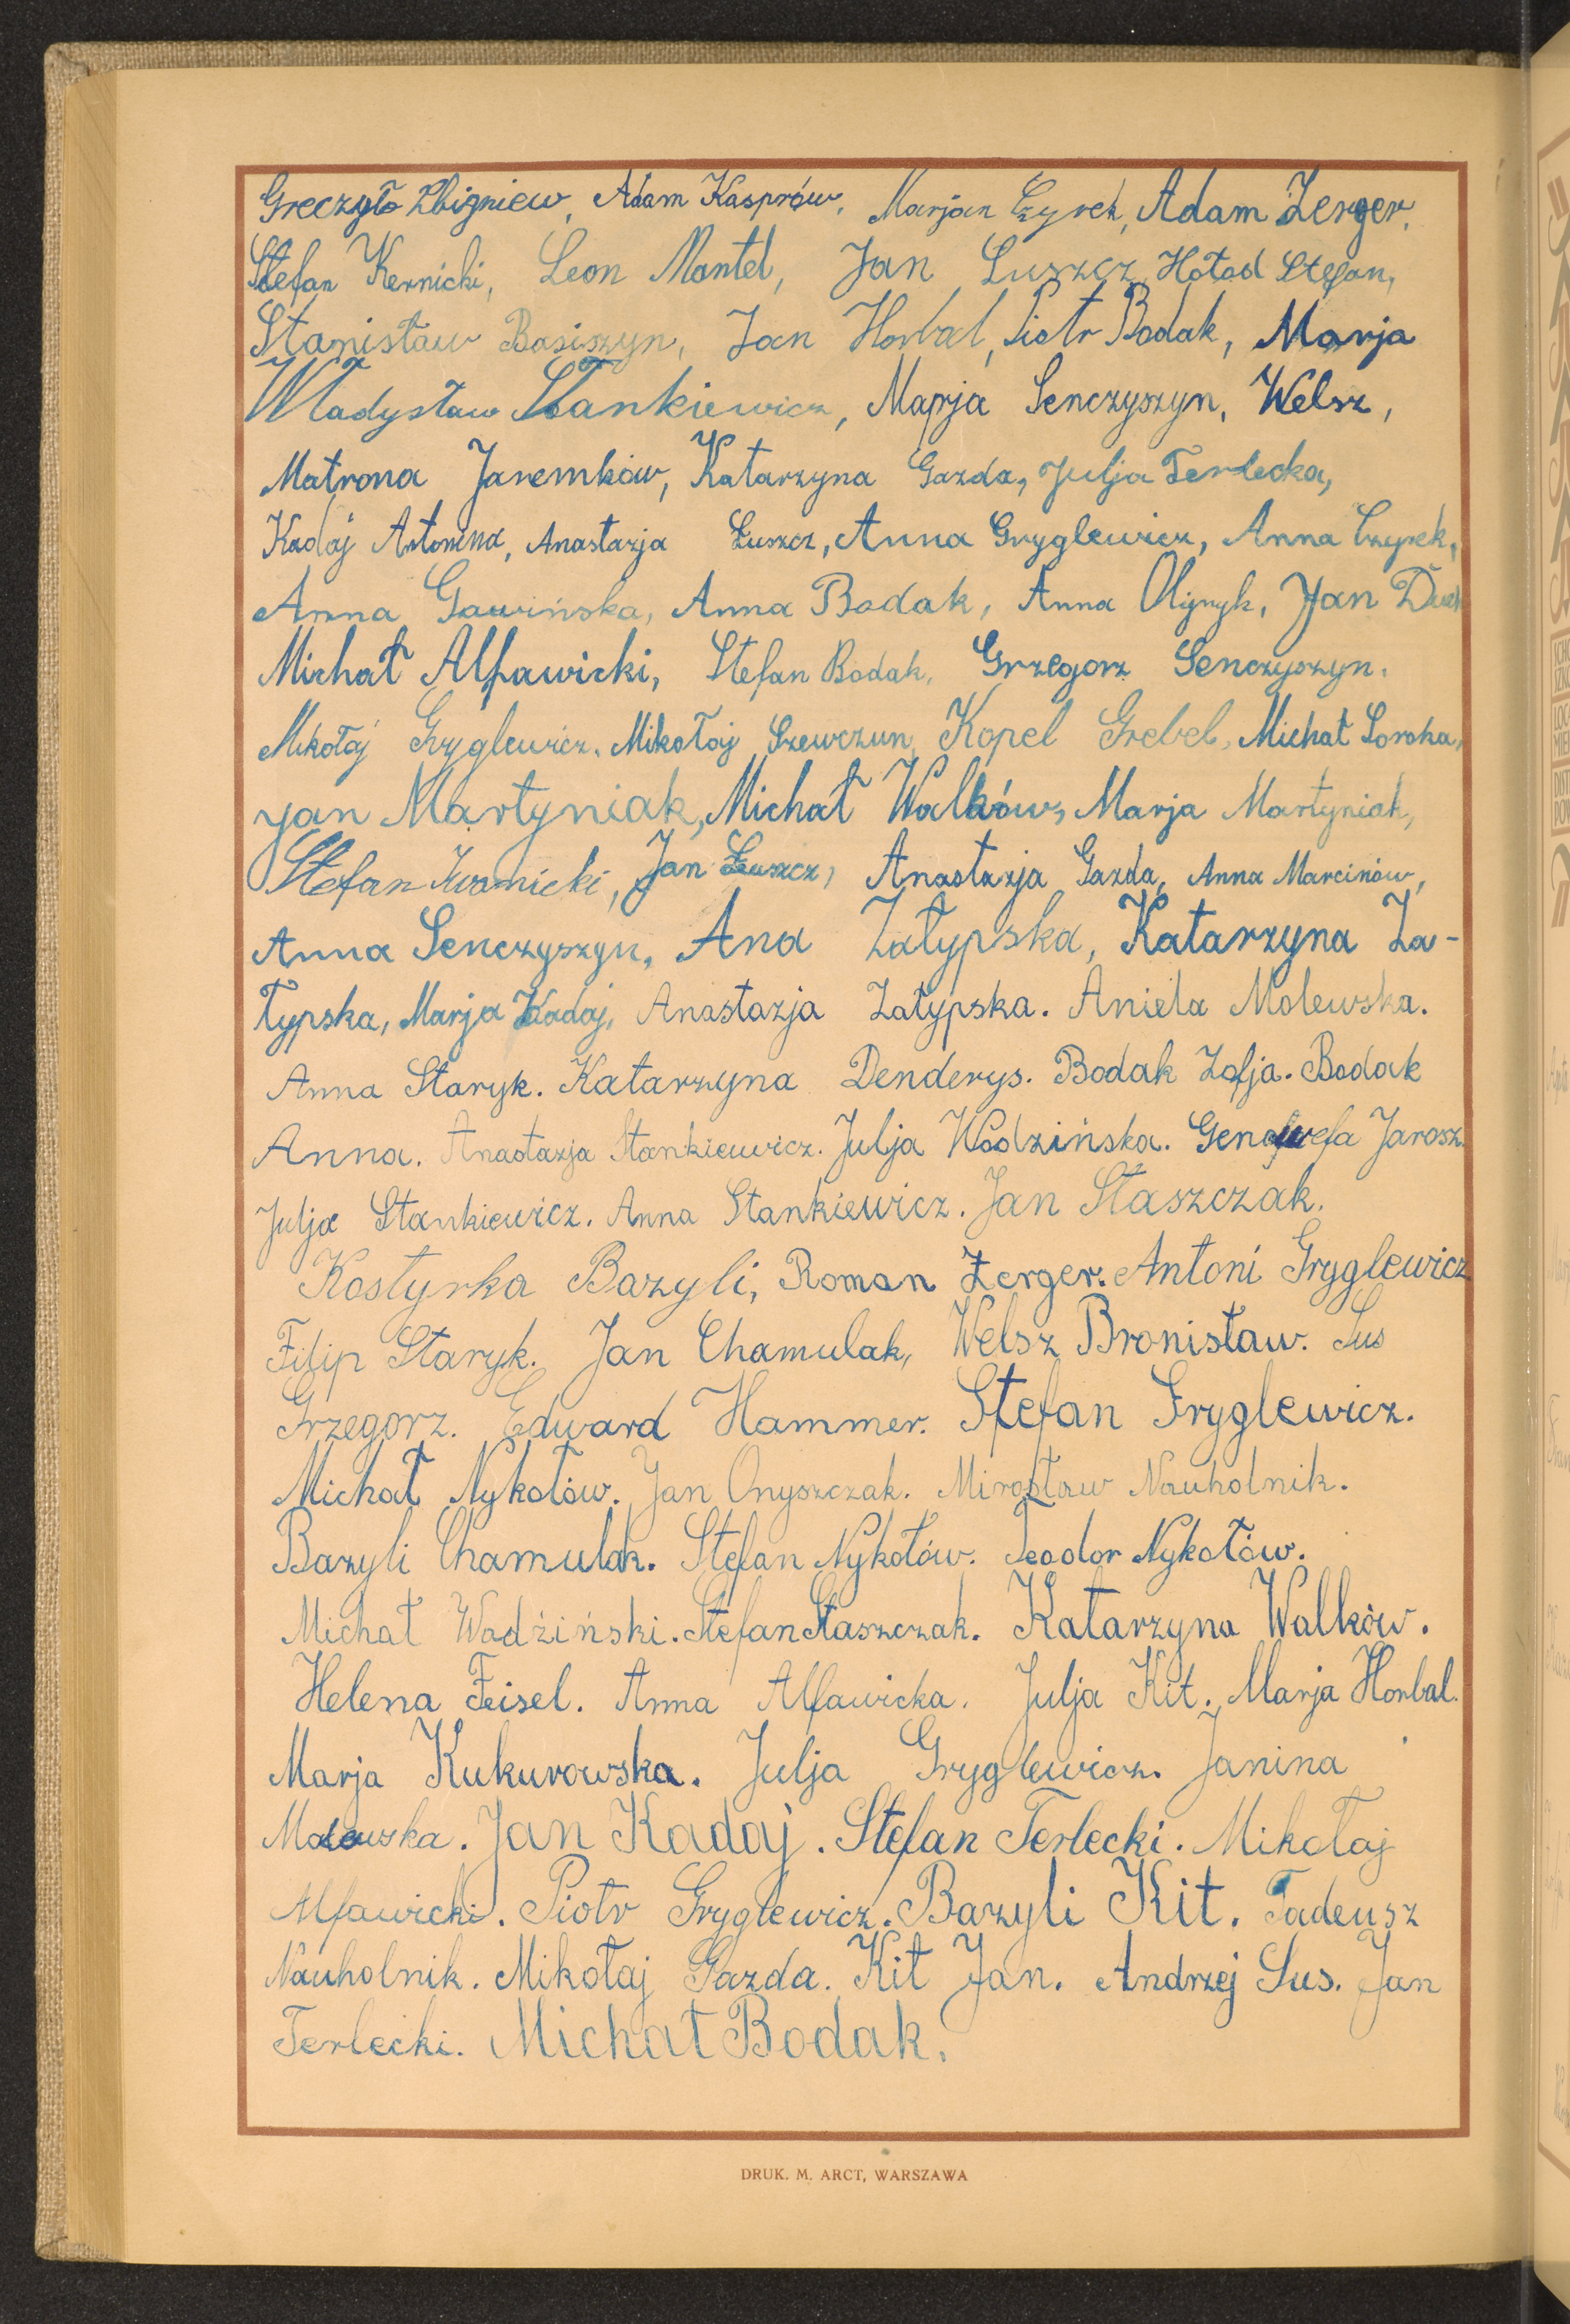 Greczyło Zbigniew, Adam Kasprów, Marjan Czyrek, Adam Zerger,
Stefan Kernicki, Leon Mantel, Jan Łuszcz, Hołod Stefan,
Stanisław Basiszyn, Jan Horbal, Piotr Bodak, Marja
Władysław Stankiewicz, Marja Senczyszyn, Welsz,
Matrona Jaremków, Katarzyna Gazda, Julja Terlecka,
Kadaj Antonina, Anastazja Łuszcz, Anna Gryglewicz, Anna Czyrek,
Anna Gawińska, Anna Bodak, Anna Olijnyk, Jan
Michał Alfawicki, Stefan Bodak, Grzegorz Senczyszyn.
Mikołaj Gryglewicz, Mikołaj Szewczun, Kopel Grebel, Michał Soroka,
Jan Martyniak, Michał Walków, Marja Martyniak,
Stefan Iwanicki, Jan Łuszcz, Anastazja Gazda, Anna Marcinów,
Anna Senczyszyn, Ana Załypska, Katarzyna Za-
łypska, Marja Kadaj, Anastazja Załypska. Aniela Molewska.
Anna Staryk. Katarzyna Denderys. Bodak Zofja. Bodak
Anna. Anastazja Stankiewicz. Julja Wodzińska. Genowefa Jarosz.
Julja Stankiewicz. Anna Stankiewicz. Jan Staszczak.
Kostyrka Bazyli, Roman Zerger. Antoni Gryglewicz
Filip Staryk. Jan Chamulak, Welsz Bronisław. Sus
Grzegorz. Edward Hammer. Stefan Gryglewicz.
Michał Nykołów. Jan Onyszczak. Mirosław Nauholnik.
Bazyli Chamulak. Stefan Nykołów. Teodor Nykołów.
Michał Wodziński. Stefan Staszczak. Katarzyna Walków.
Helena Feisel. Anna Alfawicka. Julja Kit. Marja Horbal.
Marja Kukurowska. Julja Gryglewicz. Janina
Molewska. Jan Kadaj. Stefan Terlecki. Mikołaj
Alfawicki. Piotr Gryglewicz. Bazyli Kit. Tadeusz
Nauholnik. Mikołaj Gazda. Kit Jan. Andrzej Sus. Jan
Terlecki. Michał Bodak.
DRUK. M. ARCT, WARSZAWA